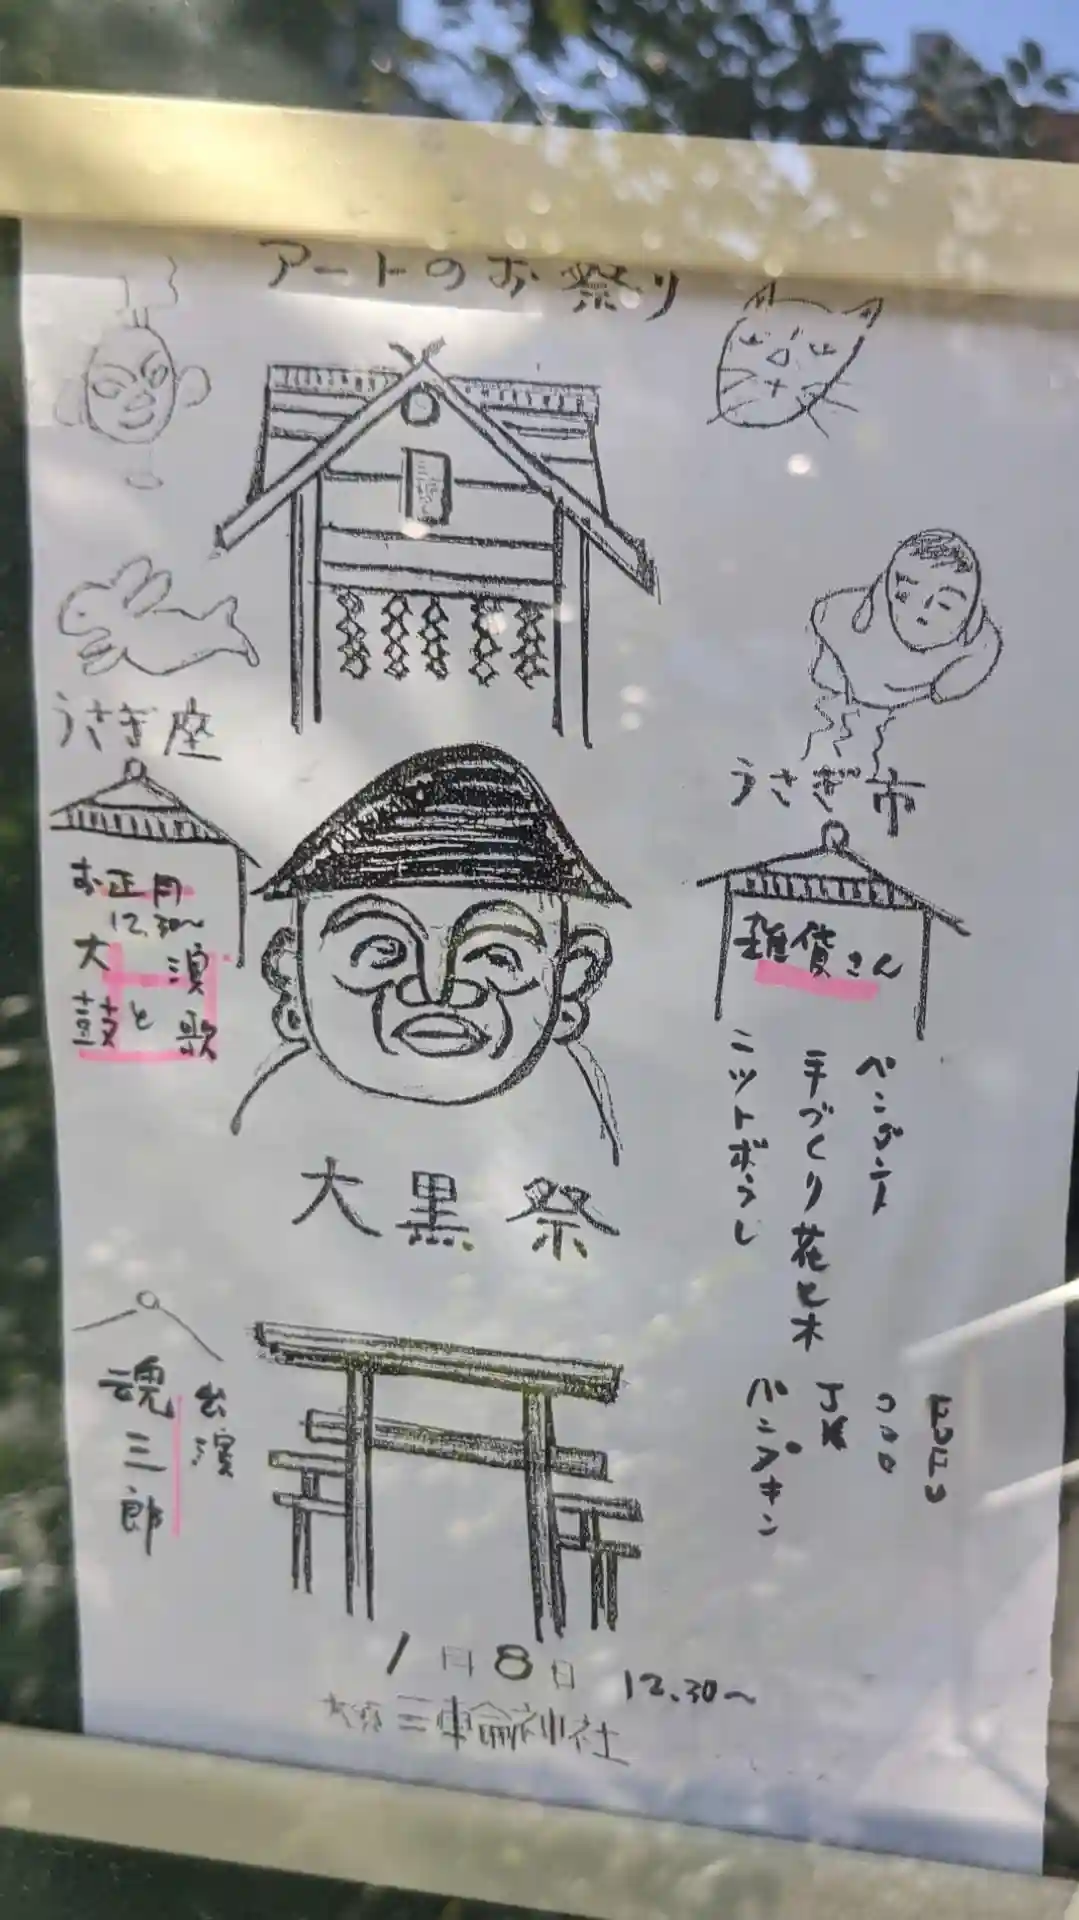 アートのお祭り
うさぎ座
お正月
12.30~
太鼓と
演歌
うさぎ市
雑貨さん
ペンダント
手づくり花と木
ニットボうし
大黒祭
出演
魂三郎
ココロ
パンプキン
1月8日 12.30~
三輪神社